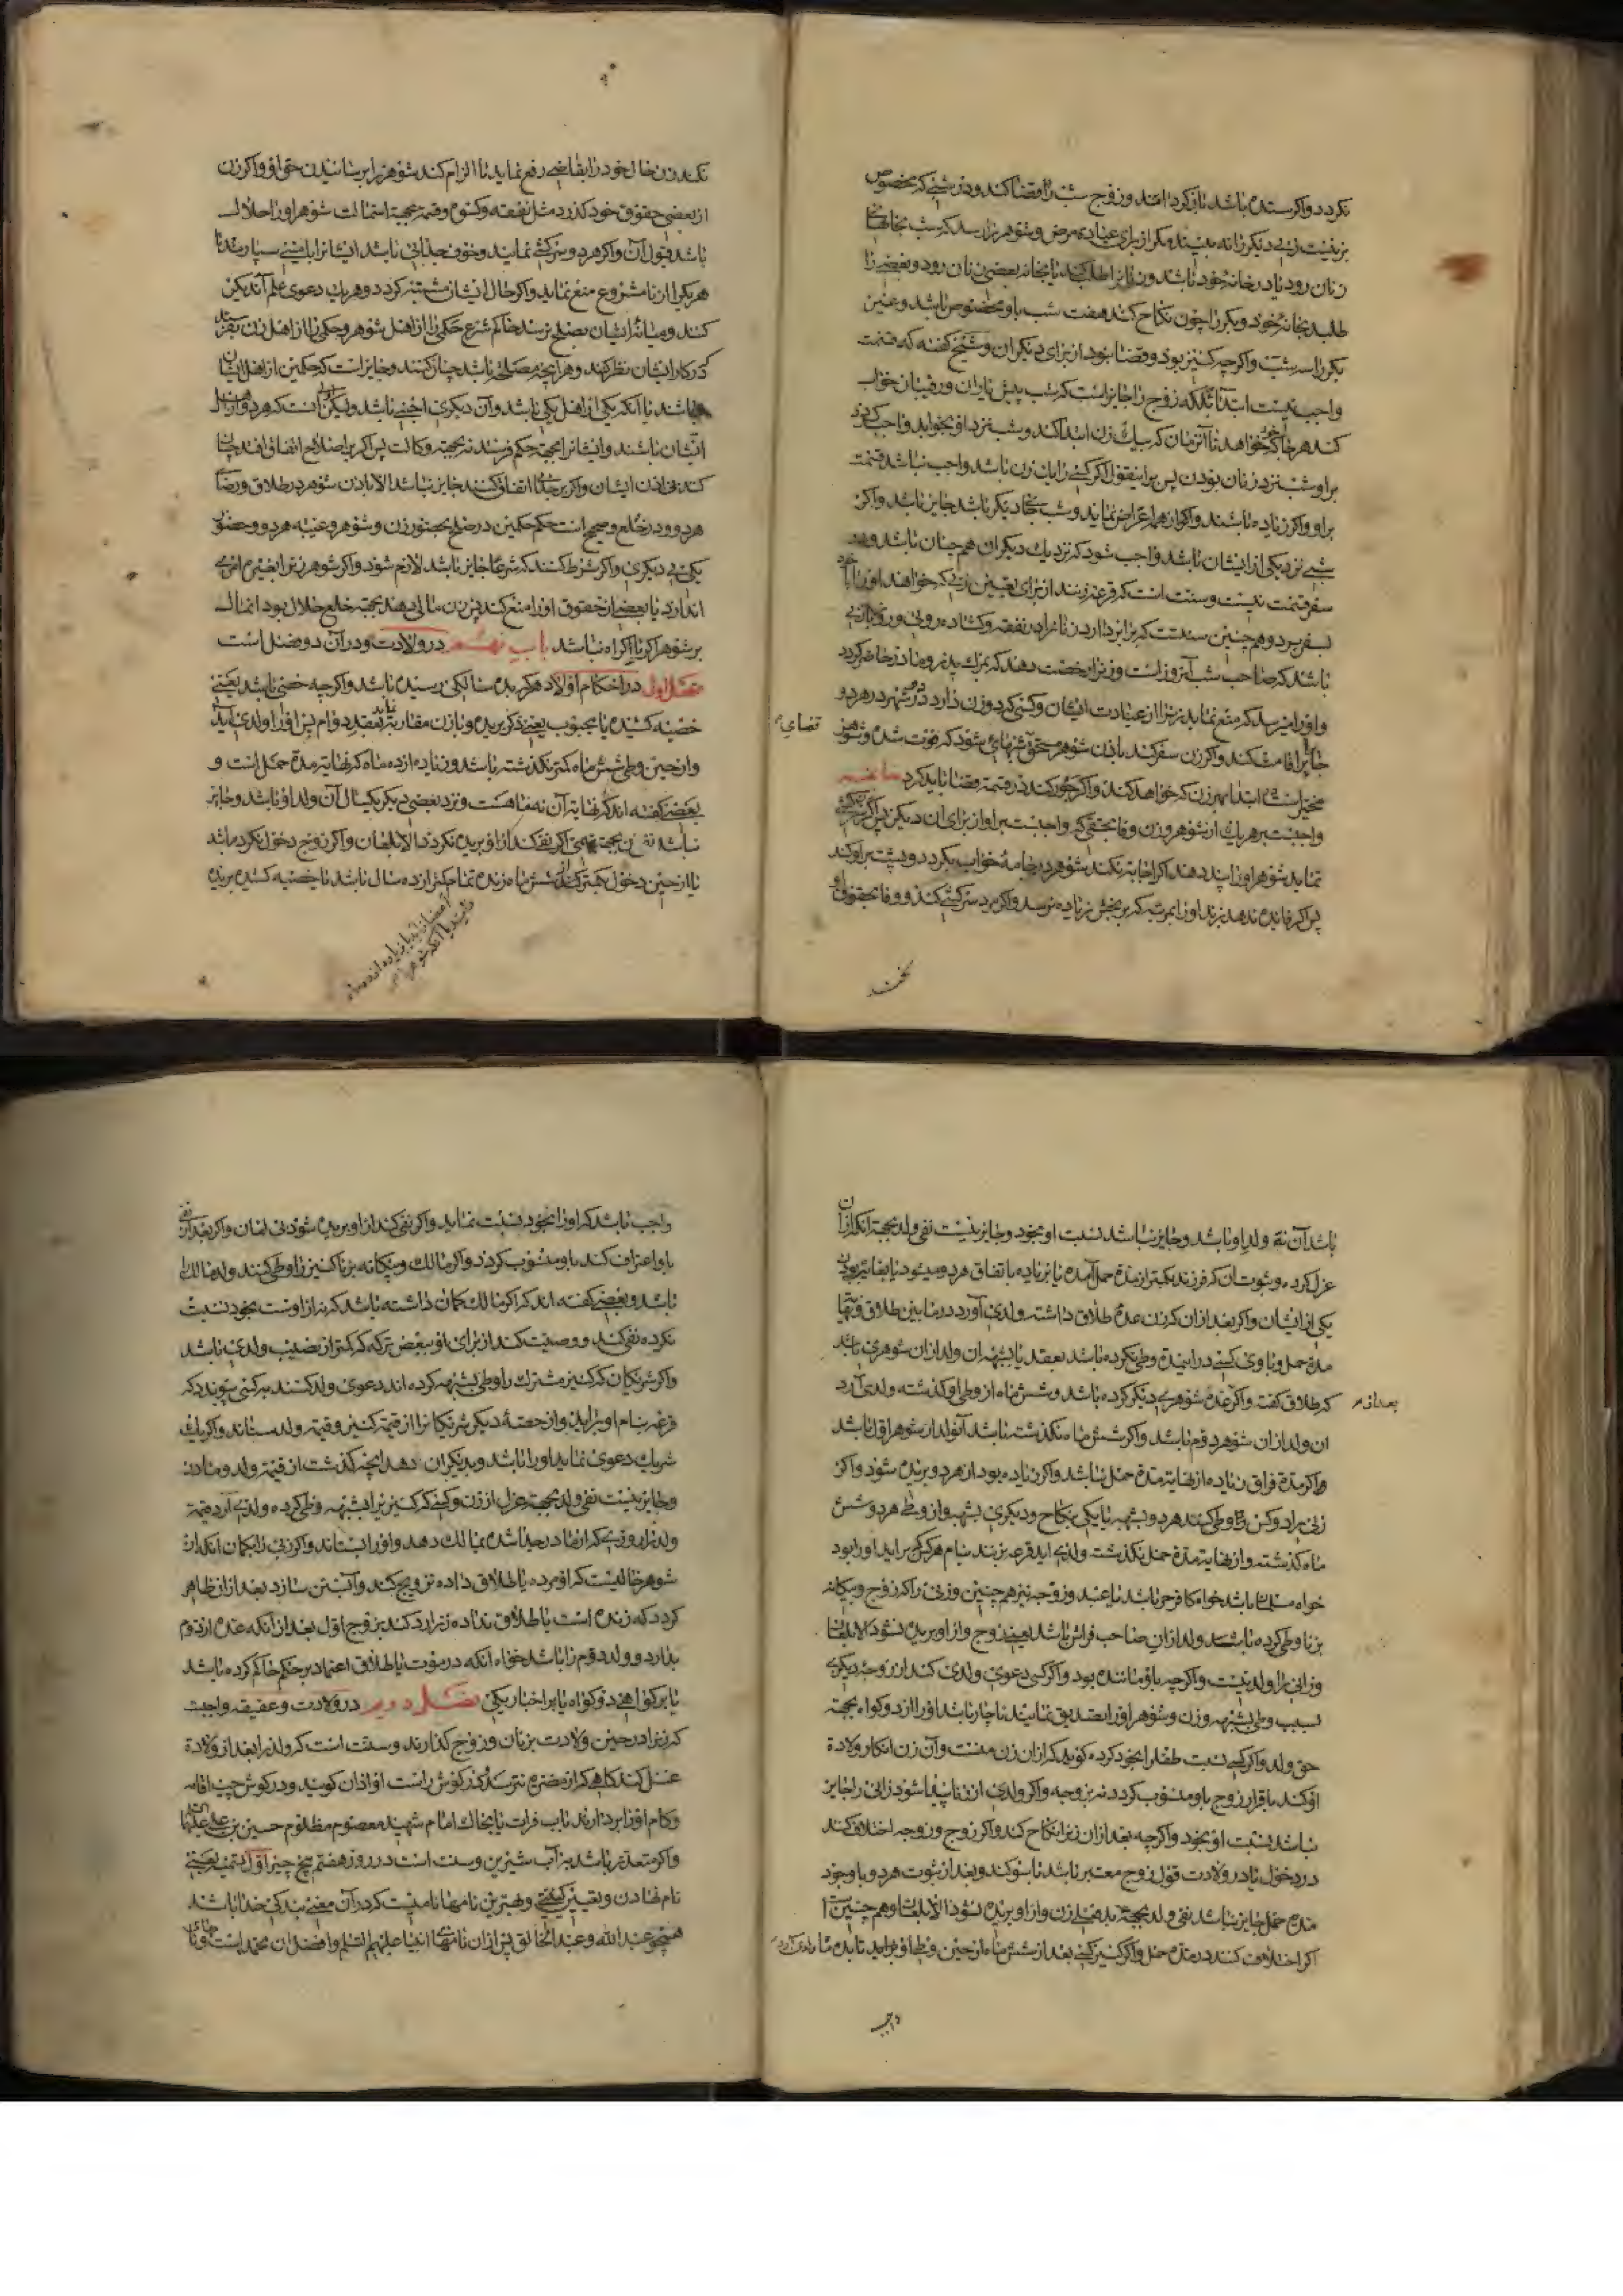 نکردد واکر سنده باشد باقی کرداند و زوج شب را قضا کند و در شبی که مخصوص
بزنیست زنی دیکر را نه بیند مکر از برای عیادة مرض و شوهر را رسد که شب بخانهای
زنان رود یا در خانهٔ خود باشد و زنانرا طلب کند یا بخانه بعضی زنان رود و بعضی را
طلبد بخانهٔ خود و بکر را چون نکاح کند هفت شب باو مخصوص باشد و غیر
بکر را سه شب واکرچه کنیز بود و قضا نبود از برای دیکران و شیخ کفته که قسمت
واجب نیست ابتدآ بلکه زوج را جایز است که شب پیش یاران و رفیقان خواب
کند هرجا که خواهد تا آنزمان که بیک زن ابتدا کند و شب نزد او بخوابد واجب کردد
براو شب نزد زنان بودن پس براینقول اکر کسی را یک زن باشد واجب نباشد قسمت
براو واکر زیاده باشند واکر از همه اعراض نماید و شب بجای دیکر باشد جایز باشد واکر
شبی نزد یکی از ایشان باشد واجب شود که نزدیک دیکران هم چنان باشد و در
سفر قسمت نیست و سنت است که قرعه زنند از برای تعیین زنی که خواهند او را با خود
بسفر برد و هم چنین سنتست که برابر دارد زنانرا در نفقه و کشاده رویی و روز با زنی
باشد که صاحب شب آنروز است و زنرا رخصت دهند که بمرک پدر و مادر حاضر کردد
واو را میرسد که منع نماید زنرا از عیادت ایشان و کسی که دو زن دارد در دو شهر در هر دو
جا برابر اقامت کند واکر زن سفر کند باذن شوهر مستحق شبهای شود که فوت شده و شوهر
قضای
مخیر است در ابتدا بهر زن که خواهد کند واکر جور کند در قسمة قضا باید کرد خاتمه
واجبست بر هریک از شوهر و زن وفا بحقی که واجبست براو از برای آن دیکر پس اکر زن سرکشی
نماید شوهر او را پند دهد اکر اجابة نکند شوهر در جامهٔ خواب بکردد و پشت براو کند
پس اکر فائده ندهد بزند او را بمرتبه که بر نجش زیاده نرسد واکر مرد سرکشی کند و وفا بحقوق او
نکند زن حال خود را بقاضی رفع نماید تا الزام کند شوهر را برسانیدن حق او واکر زن
از بعضی حقوق خود کذرد مثل نفقه و کسوه و قسمة بجهة استمالت شوهر او را حلال
باشد قبول آن واکر هر دو سرکشی نمایند و خوف جدایی باشد ایشانرا بامینی سپارند تا
هریک را از نامشروع منع نماید واکر حال ایشان مشتبه کردد و هریک دعوی ظلم آن دیکر
کنند و میانهٔ ایشان بصلح نرسد حاکم شرع حکمی را از اهل شوهر و حکمی را از اهل زن بفرستد
که در کار ایشان نظر کنند و هر آنچه مصلحة باشد چنان کنند و جایز است که حکمین از اهل ایشان
نباشند یا آنکه یکی از اهل یکی باشد و آن دیکری اجنبی باشد ولیکن اولی آنست که هر دو از اهل
ایشان باشند و ایشانرا بجهة حکم فرستد نه بجهة وکالت پس اکر بر اصلاح اتفاق افتد چنان
کند بی اذن ایشان واکر بر جدایی اتفاق کنند جایز نباشد الا باذن شوهر در طلاق و رضای
هر دو در خلع و صحیح است حکم حکمین در صلح بحضور زن و شوهر و غیبة هر دو و حضور
یکی بی دیکری واکر شرط کنند که شرعا جایز باشد لازم شود واکر شوهر زنرا بغیرم امری
اندازد یا بعضی از حقوق او را منع کند پس زن مالی دهد بجهة خلع حلال بود آنمال
بر شوهر اکر با اکراه نباشد باب نهم در ولادت و در آن دو فصل است
فصل اول در احکام اولاد هرکه بده سالکی رسیده باشد واکرچه خصی باشد یعنی
خصیه کشیده یا مجبوب یعنی ذکر بریده و با زن مقاربة نماید بعقد دوام پس او را ولدی آید
و از حین وطی شش ماه کمتر نکذشته باشد و نه زیاده از ده ماه که نهایة مدة حمل است و
بعضی کفته اند که نهایة آن نه ماهست و نزد بعضی دیکر یکسال آن ولد او باشد و جایز
نباشد نفی ولد بجهة تهمة واکر نفی کند از او بریده نکردد الا بلعان واکر زوج دخول نکرده باشد
یا از حین دخول بکمتر از شش ماه زنده تمام یا کمتر از ده سال باشد یا خصیه کشیده بریده
باشد آن نه ولد او باشد و جایز نباشد نسبت او بخود و جایز نیست نفی ولد بجهة آنکه از آن
عزل کرده و ثبوت آن که فرزند بکمتر از مدة حمل آمده یا بزیاده باتفاق هر دو میشود یا بغایب بودن
یکی از ایشان واکر بعد از آن که زن عدة طلاق داشته ولدی آورد در مابین طلاق و نهایة
مدة حمل و با وی کسی در اینمدة وطی نکرده باشد بعقد یا بشبهه آن ولد از آن شوهری باشد
که طلاق کفته واکر عده شوهری دیکر کرده باشد و شش ماه از وطی او کذشته ولدی آرد
بعد از
آن ولد از آن شوهر دوم باشد واکر شش ماه نکذشته باشد آنولد از شوهر اول باشد
واکر مدة فراق زیاده از نهایة مدة حمل باشد واکر زیاده بود از هر دو بریده شود واکر
زنی را دو کس وطی کنند هر دو بشبهه یا یکی بنکاح و دیکری بشبهه و از وطی هر دو شش
ماه کذشته و از نهایة مدة حمل نکذشته ولدی آید قرعه بزنند بنام هرکس که برآید او را بود
خواه مسلمان باشد خواه کافر حر باشد یا عبد و زوجه نیز هم چنین و زنی را که زوج و بیکانه
بزنا وطی کرده باشد ولد از آن صاحب فراش باشد یعنی زوج و از او بریده نشود الا بلعان
و زانی را ولد نیست واکرچه باو ماننده بود واکر کسی دعوی ولدی کند از زوجهٔ دیکری
بسبب وطی بشبهه و زن و شوهر او را تصدیق نمایند ناچار باشد او را از دو کواه بجهة
حق ولد واکر کسی نسبت طفل را بخود کرده کوید که از آن زن منست و آن زن انکار ولادة
او کند باقرار زوج باو منسوب کردد نه بزوجه واکر ولدی از زنا پیدا شود زانی را جایز
نباشد نسبت او بخود واکرچه بعد از آن زنرا نکاح کند واکر زوج و زوجه اختلاف کنند
در دخول یا در ولادت قول زوج معتبر باشد با سوکند و بعد از ثبوت هر دو با وجود
مدة حمل جایز نباشد نفی ولد بجهة بدفعلی زن و از او بریده نشود الا بلعان و هم چنین است
اکر اختلاف کنند در مدة حمل واکر کنیز کسی بعد از شش ماه از حین وطی او بزاید تا بده ماه ولدی آرد
واجب
واجب باشد که او را بخود نسبت نماید واکر نفی کند از او بریده شود بی لعان واکر بعد از نفی
باو اعتراف کند باو منسوب کردد واکر مالک و بیکانه بزنا کنیز را وطی کنند ولد مالک را
باشد و بعضی کفته اند که اکر مالک کمان داشته باشد که نه از اوست بخود نسبت
نکرده نفی کند و وصیت کند از برای او ببعض ترکه که کمتر از نصیب ولدی باشد
واکر شریکان که کنیز مشترک را وطی بشبهه کرده اند دعوی ولد کنند بکسی پیوندد که
قرعه بنام او برآید و از حصهٔ دیکر شریکانرا از قیمة کنیز و قیمة ولد بستاند واکر یک
شریک دعوی نماید او را باشد و بدیکران دهد آنچه کذشت از قیمة ولد و مادر
و جایز نیست نفی ولد بجهة عزل از زن و کسی که کنیزیرا بشبهه وطی کرده ولدی آرد قیمة
ولد را روزی که از مادر جدا شده بمالک دهد و او را بستاند واکر زنی را بکمان آنکه از
شوهر خالیست که او مرده یا طلاق داده تزویج کند و آبستن سازد بعد از آن ظاهر
کردد که زنده است یا طلاق نداده زنرا رد کند بزوج اول بعد از آنکه عده از دوم
بدارد و ولد دوم را باشد خواه آنکه در موت یا طلاق اعتماد بر حکم حاکم کرده باشد
یا بر کواهی دو کواه یا بر اخبار یکی فصل دویم در ولادت و عقیقه واجبست
که زنرا در حین ولادت بزنان و زوج کذارند و سنت است که ولد را بعد از ولادة
غسل کنند کاهی که از مضره نترسند و در کوش راست او اذان کویند و در کوش چپ اقامه
و کام او را بردارند بآب فرات یا بخاک امام شهید معصوم مظلوم حسین بن علی علیهما السلام
واکر متعذر باشد به آب شیرین و سنت است در روز هفتم پنج چیز اول تسمیه یعنی
نام نهادن و تعیین کنیتی و بهترین نامها نامیست که در آن معنی بندکی خدا باشد
همچو عبد الله و عبد الخالق پس از آن نامهای انبیا علیهم السلم و افضل آن محمد است